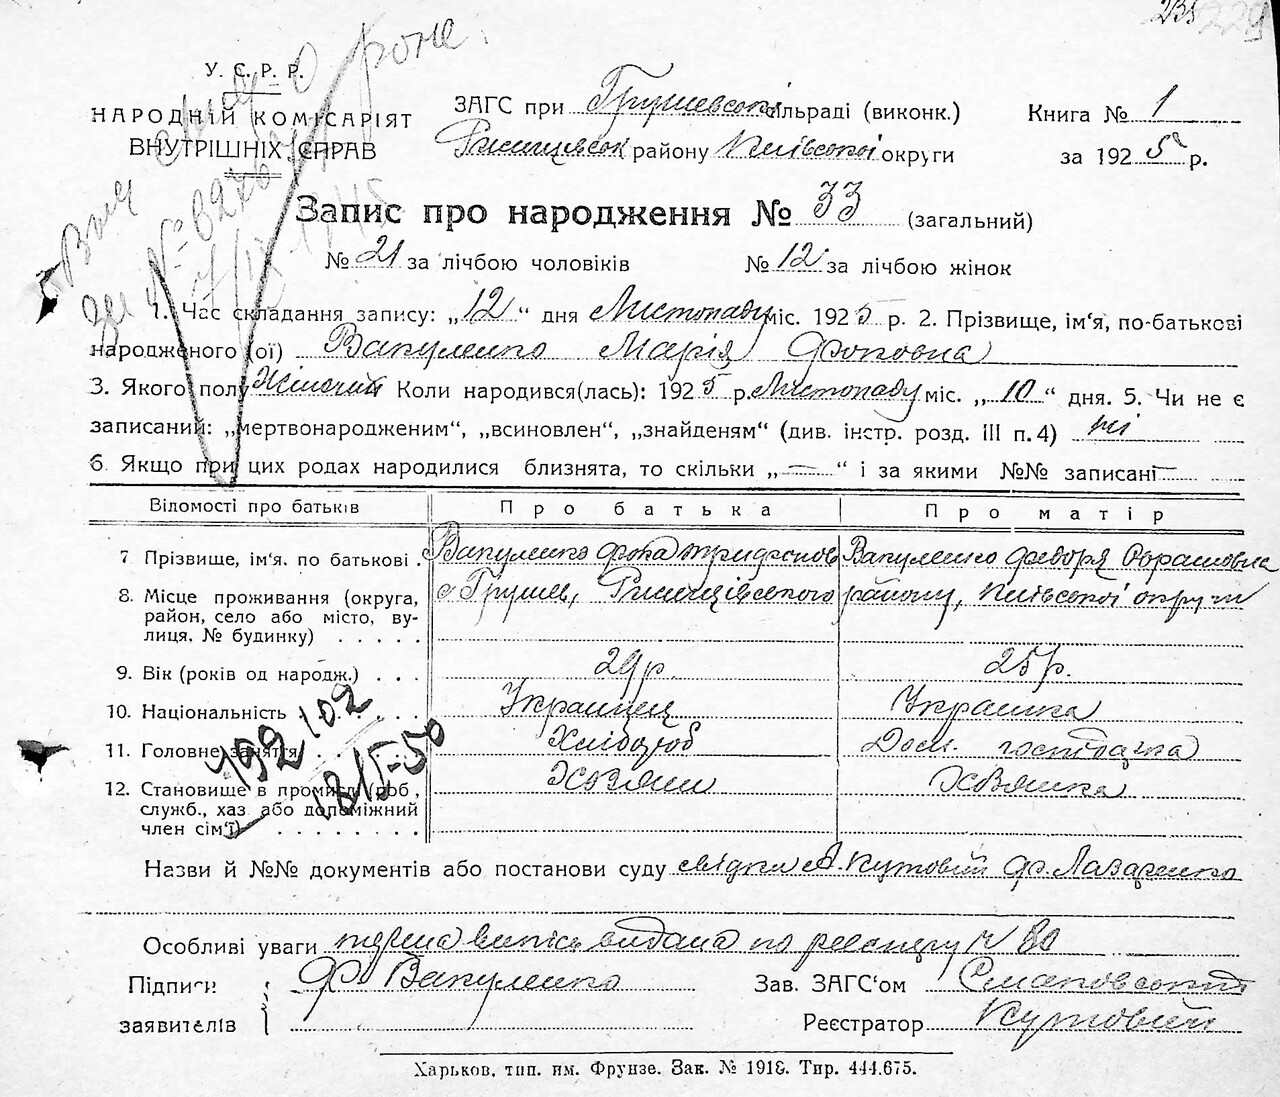 229
У. С. Р. Р.
НАРОДНІЙ КОМІСАРІЯТ
ВНУТРІШНІХ СПРАВ
ЗАГС при Грушевській сільраді (виконк.)
Ржищевськ району Київської округи
Книга № 1
за 1925 р.
Запис про народження № 33 (загальний)
№ 21 за лічбою чоловіків № 12 за лічбою жінок
1. Час складання запису: „12“ дня Листопаду міс. 1925 р. 2. Прізвище, ім‘я, по-батькові
народженого (ої) Вакуленко Марія Фоковна
3. Якого полу Жіночий Коли народився(лась): 1925 р. Листопаду міс. „10“ дня. 5. Чи не є
записаний: „мертвонародженим“, „всиновлен“, „знайденям“ (див. інстр. розд. III п. 4) ні
6. Якщо при цих родах народилися близнята, то скільки „—“ і за якими №№ записані —
Відомості про батьків Про батька Про матір
7 Прізвище, ім‘я. по батькові . Вакуленко Фока Вакуленко Федора
8. Місце проживання (округа, с Грушев, Ржищівського району, Київської округи
район, село або місто, ву-
лиця, № будинку) . . . . .
9. Вік (років од народж.) . . . 29 р. 25 р.
10. Національність Українец Українка
11. Головне заняття Хлібороб Дом. господарка
12. Становище в промислі (роб, Хазяин Хозяйка
служб., хаз або допоміжний
член сім‘ї) . . . . . . . .
192 102
18/I-50
Назви й №№ документів або постанови суду свідки А. Кутовий Ф. Лазаренко
Особливі уваги перша випись видана по реєстру № 80
Підписи Ф Вакуленко
заявителів
Зав. ЗАГС‘ом
Реєстратор Кутовий
Харьков, тип. им. Фрунзе. Зак. № 1918. Тир. 444.675.